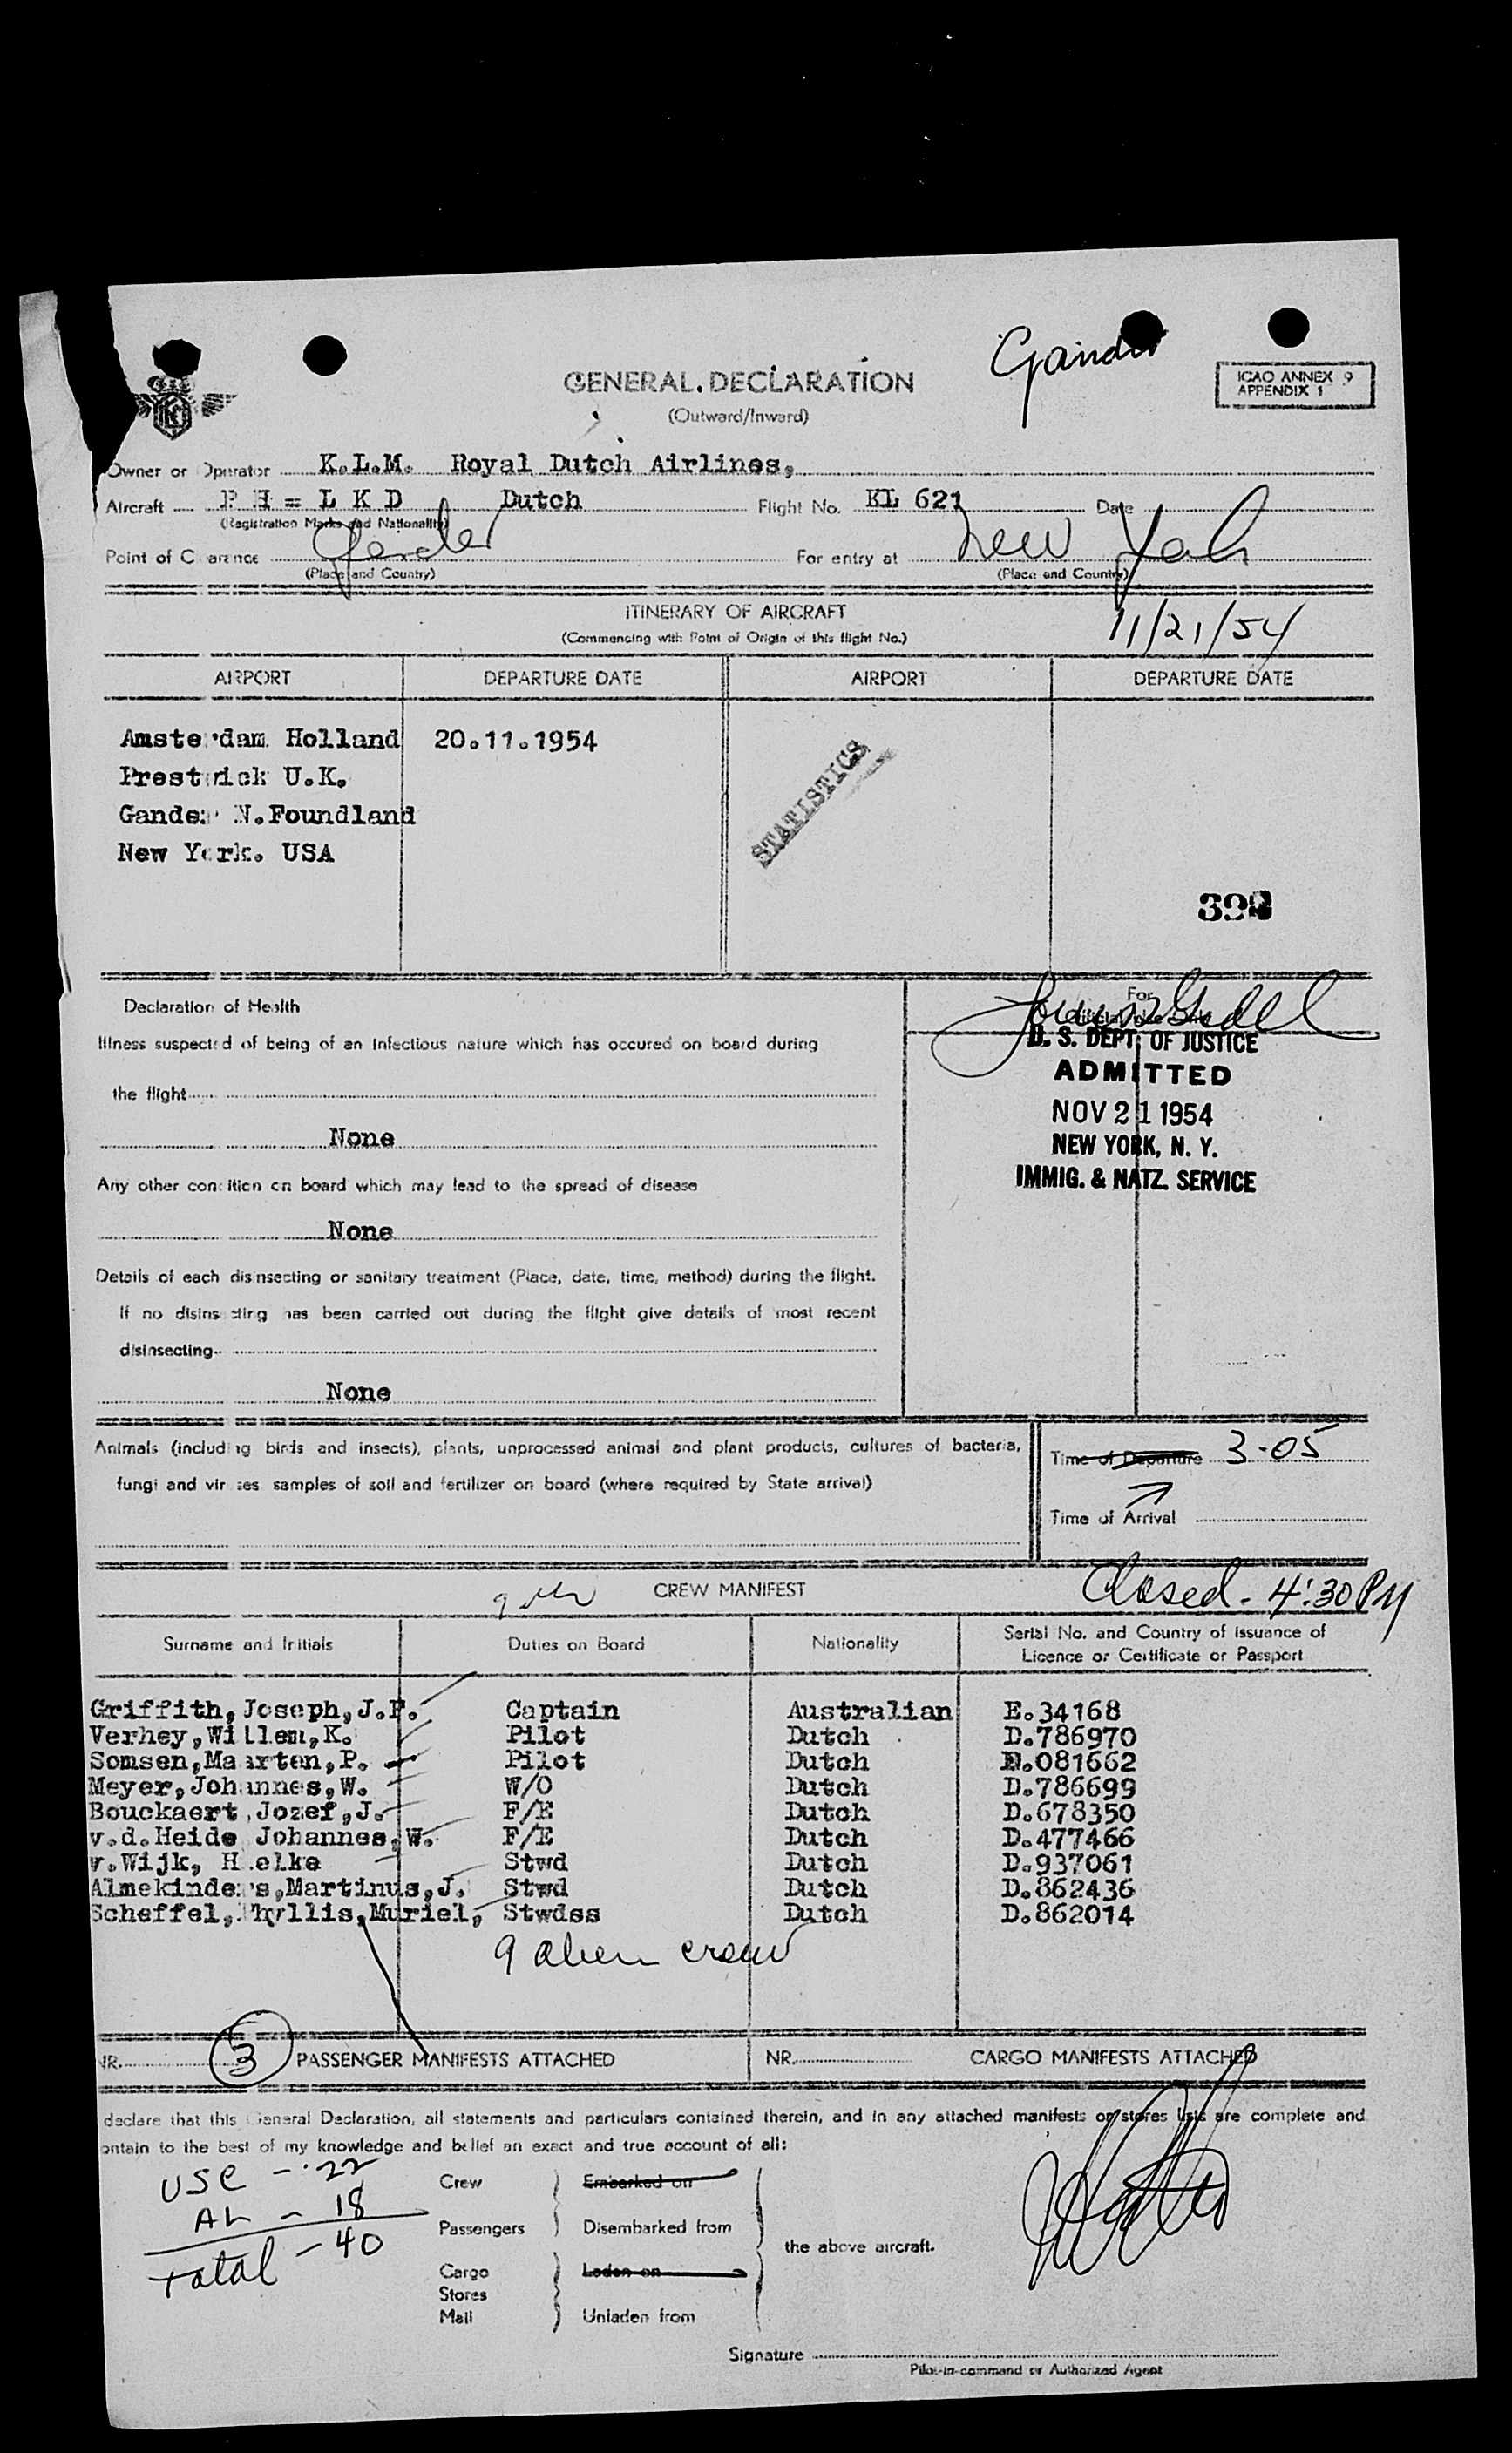 Gander
GENERAL DECLARATION
ICAO ANNEX 9
APPENDIX 1
(Outward/Inward)
Owner or Operator K.L.M. Royal Dutch Airlines,
Aircraft PH = L K D Dutch Flight No. KL 621 Date
(Registration Marks and Nationality)
Point of Clearance Gander For entry at New York
(Place and Country) (Place and Country)
ITINERARY OF AIRCRAFT
(Commencing with Point of Origin of this flight No.)
11/21/54
AIRPORT DEPARTURE DATE AIRPORT DEPARTURE DATE
Amsterdam Holland 20.11.1954
Prestwick U.K.
Gander N.Foundland
New York. USA
STATISTICS
Declaration of Health
For
Official use only
Illness suspected of being of an infectious nature which has occured on board during
the flight
None
U. S. DEPT. OF JUSTICE
ADMITTED
NOV 21 1954
NEW YORK, N. Y.
IMMIG. & NATZ. SERVICE
Any other condition on board which may lead to the spread of disease
None
Details of each disinsecting or sanitary treatment (Place, date, time, method) during the flight.
If no disinsecting has been carried out during the flight give details of most recent
disinsecting
None
Animals (including birds and insects), plants, unprocessed animal and plant products, cultures of bacteria,
fungi and viruses, samples of soil and fertilizer on board (where required by State arrival)
Time of Departure 3-05
Time of Arrival
CREW MANIFEST
Closed - 4:30 PM
Surname and Initials Duties on Board Nationality Serial No. and Country of Issuance of
Licence or Certificate or Passport
Griffith,Joseph,J.F. Captain Australian E.34168
Verhey,Willem,K. Pilot Dutch D.786970
Somsen,Maarten,P. Pilot Dutch D.081662
Meyer,Johannes,W. W/O Dutch D.786699
Bouckaert,Jozef,J. F/E Dutch D.678350
v.d.Heide Johannes,W. F/E Dutch D.477466
v.Wijk, Hielke Stwd Dutch D.937061
Almekinders,Martinus,J. Stwd Dutch D.862436
Scheffel,Phyllis,Muriel, Stwdss Dutch D.862014
9 alien crew
NR. 3 PASSENGER MANIFESTS ATTACHED NR. CARGO MANIFESTS ATTACHED
declare that this General Declaration, all statements and particulars contained therein, and in any attached manifests or stores lists are complete and
ontain to the best of my knowledge and belief an exact and true account of all:
USC - 22
AL - 18
Total - 40
Crew Embarked on
Passengers Disembarked from
the above aircraft.
Cargo Laden on
Stores
Mail Unladen from
Signature
Pilot-in-command or Authorized Agent